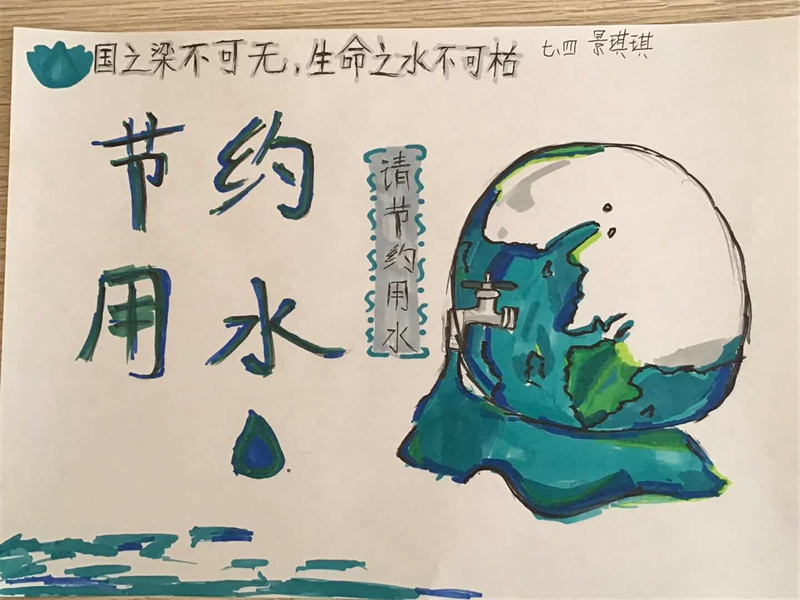 国之梁不可无,生命之水不可枯
七.四 景琪琪
节约
用水
请节约用水